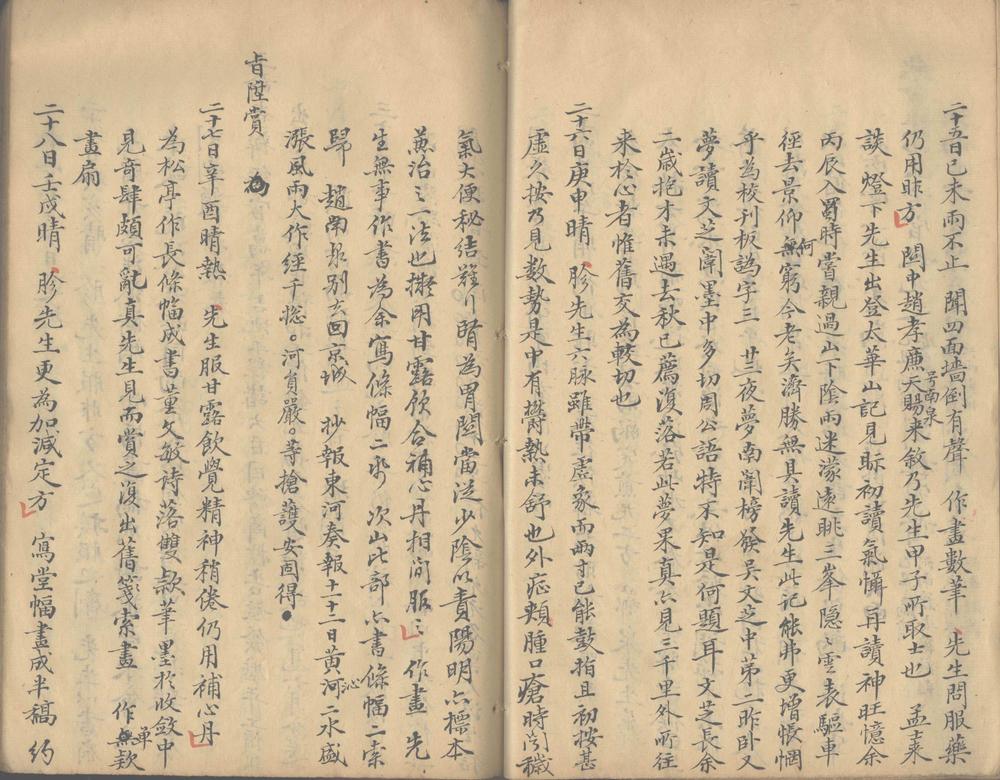 二十五日己未雨不止 聞四面墻倒有聲 作畫數筆 先生問服藥
仍用昨方 關中趙孝廉天賜号南泉來敘乃先生甲子所取士也 孟
談 燈下先生出登太華山記見眎初讀氣懾再讀神旺憶余
丙辰入蜀時嘗親過山下陰雨迷濛遠眺三峯隱〻雲表驅車
徑去景仰無窮今老矣濟勝無具讀先生此記能弗更增悵惘何
乎為校刊板譌字三 廿三夜夢南闈榜發吳文之中第二昨卧又
夢讀文芝闈墨中多切周公語特不知是何題耳文芝長余
二歲抱才未遇去秋已薦復落若此夢果真亦見三千里外所往
来於心者惟舊交為較切也
二十六日庚申晴 胗先生六脉雖帶虛象而兩寸已能鼓指且初按甚
虛久按乃見数勢是中有鬱熱未舒也外症頰腫口瘡時
氣大便秘結雖腎為胃關當從少陰以責陽明亦標本
兼治之一法也擬用甘露飲合補心丹相間服之 作畫 先
生無事作書為余寫條幅二 次山比部亦書條幅二索
歸 趙南泉別去回京城 抄報東河奏報十二十三日黄河沁二水盛
漲風雨大作經千 河 嚴 等搶護安固得
旨陞賞
二十七日辛酉晴熱 先生服甘露飲覺精神稍倦仍用補心丹
為松亭作長條幅成書董文敏詩落雙款筆墨於收斂中
見奇肆頗可亂真先生見而賞之復出舊箋索畫 作無款單
畫扇
二十八日壬戌晴 胗先生更為加減定方 寫堂幅畫成半稿 約